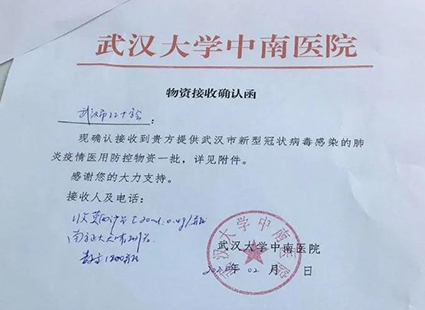 武汉大学中南医院
物资接收确认函
武汉市
:
现确认接收到贵方提供武汉市新型冠状病毒感染的肺
炎疫情医用防控物资一批，详见附件。
感谢您的大力支持。
接收人及电话:
武汉大学中南医院
武汉大学中南医院
年02月 日